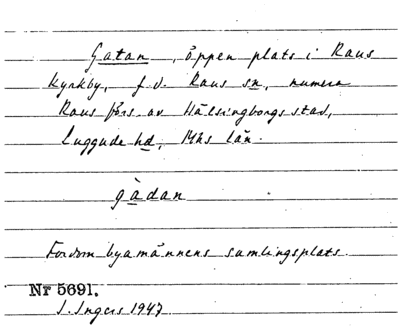 Gatan, öppen plats i Raus
kyrkby, f.d. Raus sn, numera
Raus förs. av Hälsingborgs stad,
Luggude hd, Mhs län.
gàdan
Fordom byamännens samlingsplats.
Nr 5691.
I. Ingers 1947